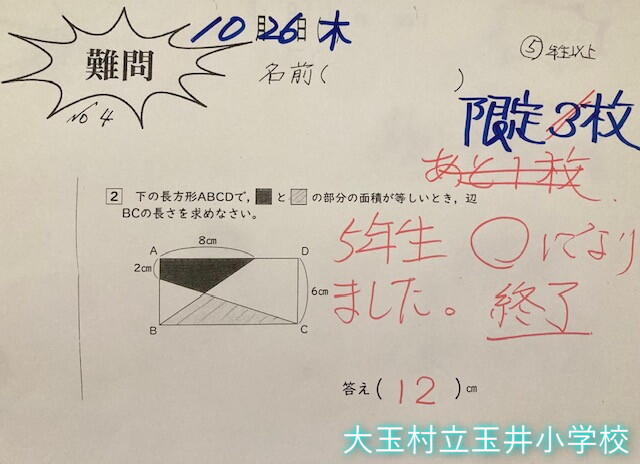 10月26日(木
難問
No 4
⑤年生以上
名前( )
限定3枚
あと1枚
2 下の長方形ABCDで,■と▨の部分の面積が等しいとき,辺
BCの長さを求めなさい。
5年生 ○になり
ました。終了
8cm
A D
2cm
6cm
B C
答え( 12 )cm
大玉村立玉井小学校